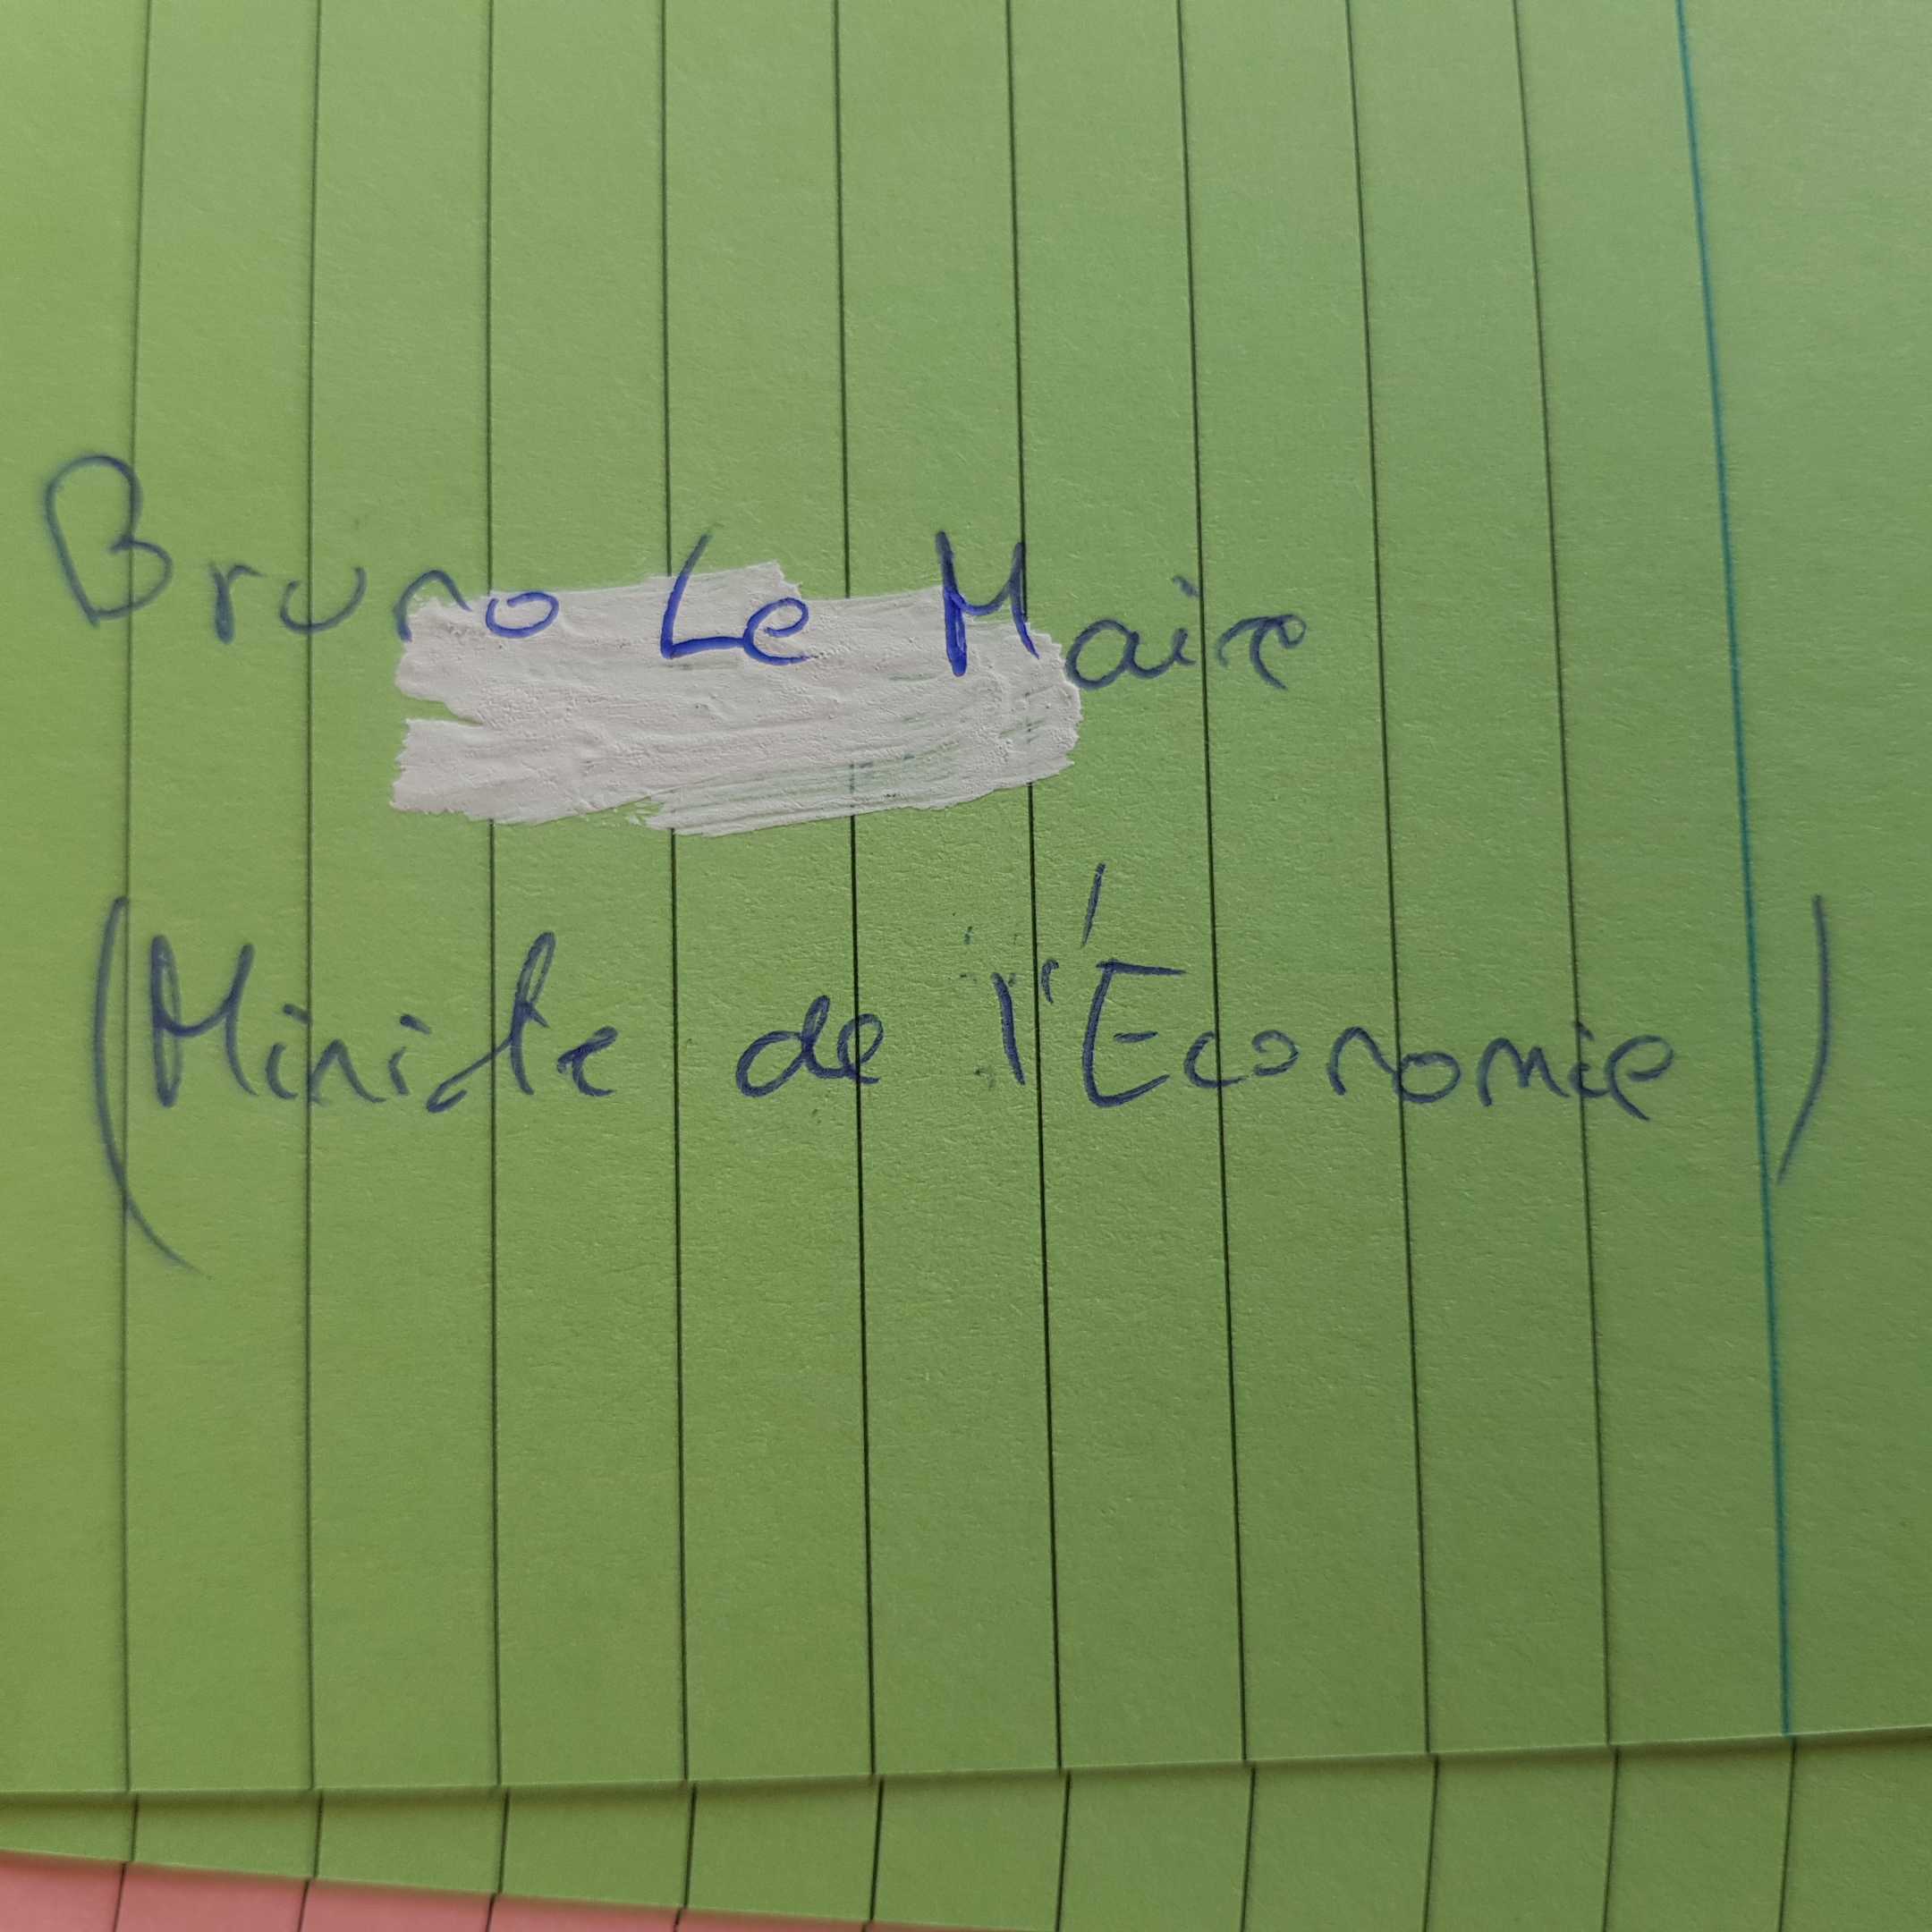 Bruno Le Maire
(Ministre de l'Économie)